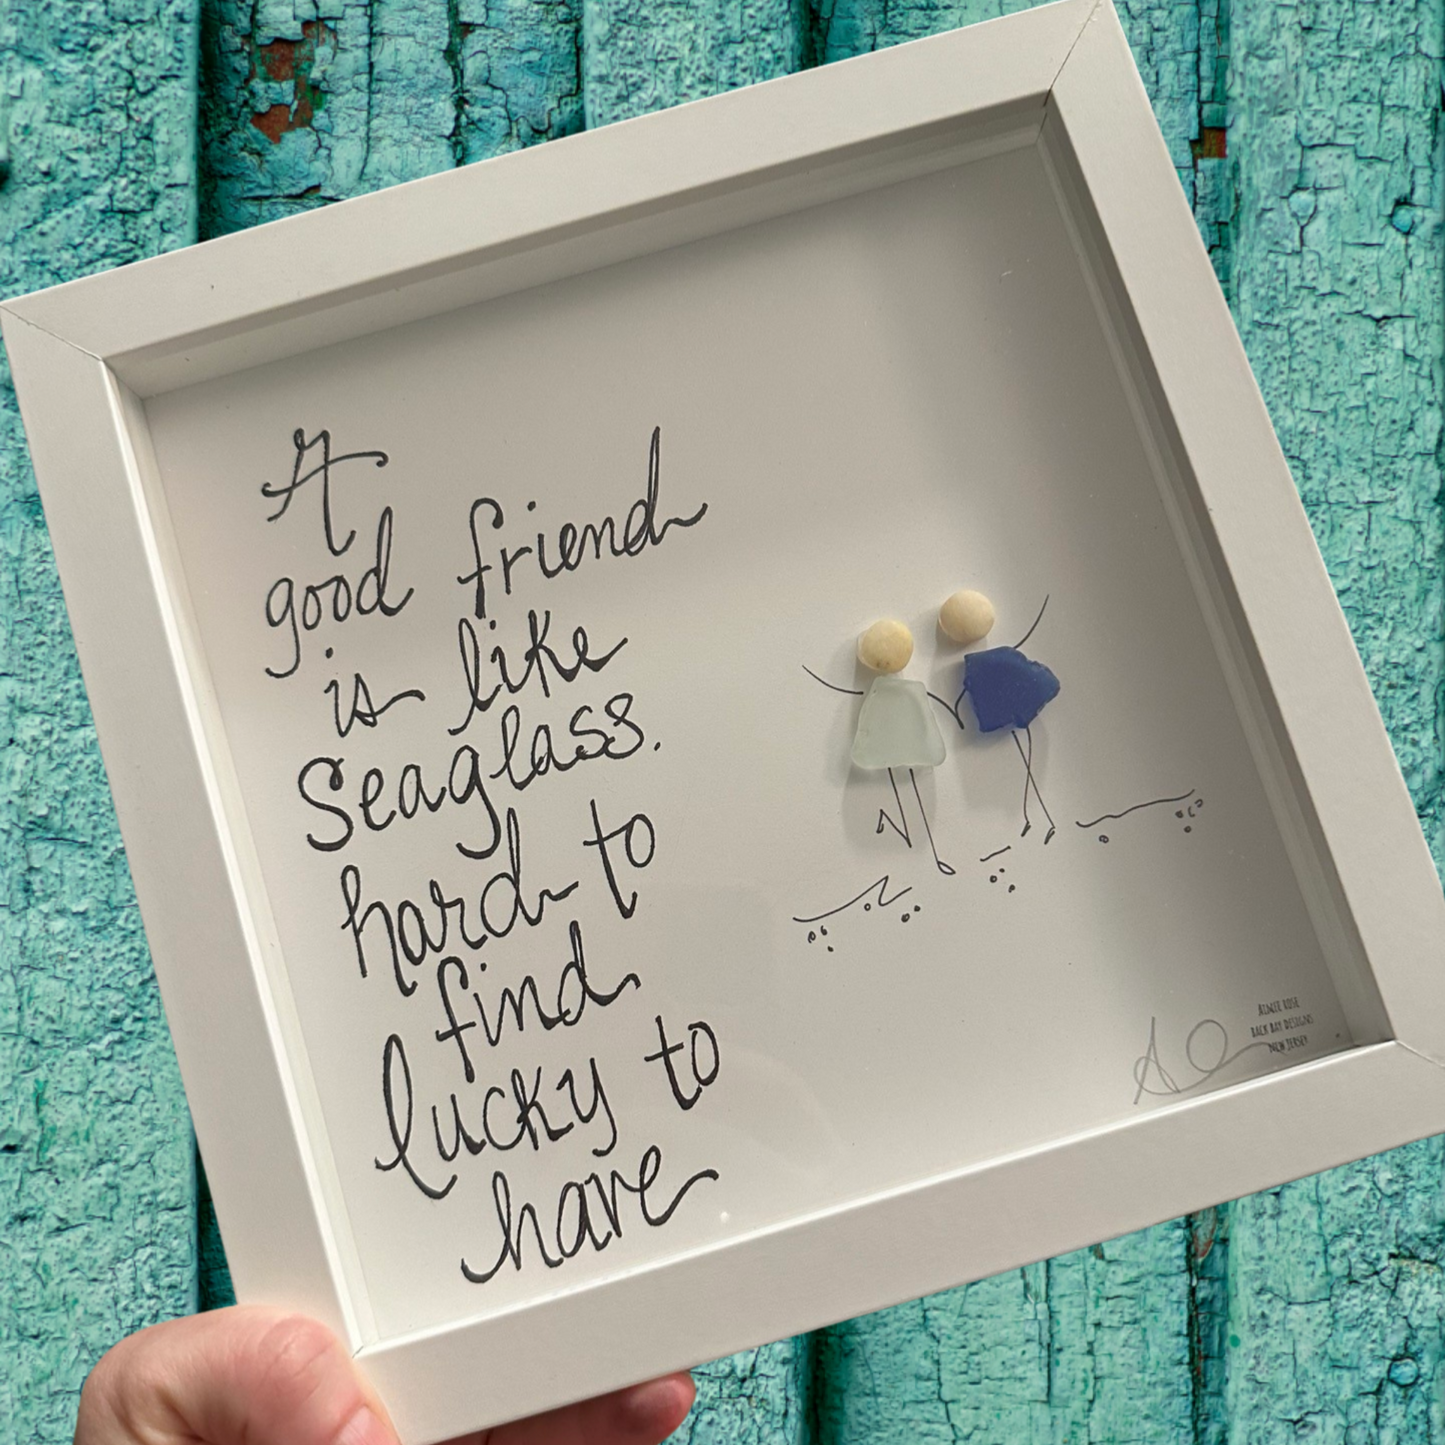 A
good friend
is like
Seaglass.
hard to
find
lucky to
have
AIMEE ROSE
BACK BAY DESIGNS
NEW JERSEY